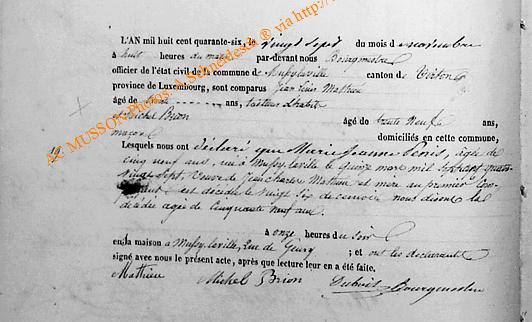 L'AN mil huit cent quarante-six, le vingt sept du mois de novembre
à huit heures du matin par-devant nous Bourgmestre
officier de l'état civil de la commune de Mussy-la-ville canton de Virton
province de Luxembourg, sont comparus Jean Louis Mathieu
âgé de ans,
et Michel Brion âgé de trente Neuf ans,
maçon domiciliés en cette commune,
19 Lesquels nous ont déclaré que Marie Jeanne Denis, âgée de
cinq neuf ans, née à Mussy-la-ville le quinze mars mil sept cent quatre
vingt sept veuve de Jean Charles Mathieu et mère au premier
est décédée le vingt six de ce mois nous disons la
décédée âgée de cinquante neuf ans.
à onze heures du soir
en la maison à Mussy-la-ville, rue de ; et ont les déclarants
signé avec nous le présent acte, après que lecture leur en a été faite.
Mathieu Michel Brion Bourgmestre
AC MUSSON Photos: A. Schneidesch @ via http://